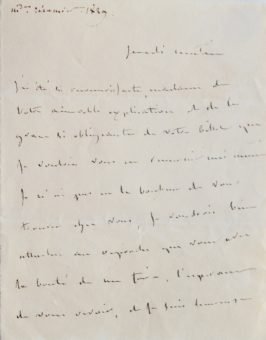 jeudi matin
J'ai été si reconnaissante, madame, de
votre aimable explication et de la
grace si obligeante de votre billet que
je voulois vous en remercier moi même
Je n'ai pas eu le bonheur de vous
trouver chez vous, je voudrois bien
attacher au regrets que vous avez
la bonté de me faire, l'esperance
de vous revoir, et je suis